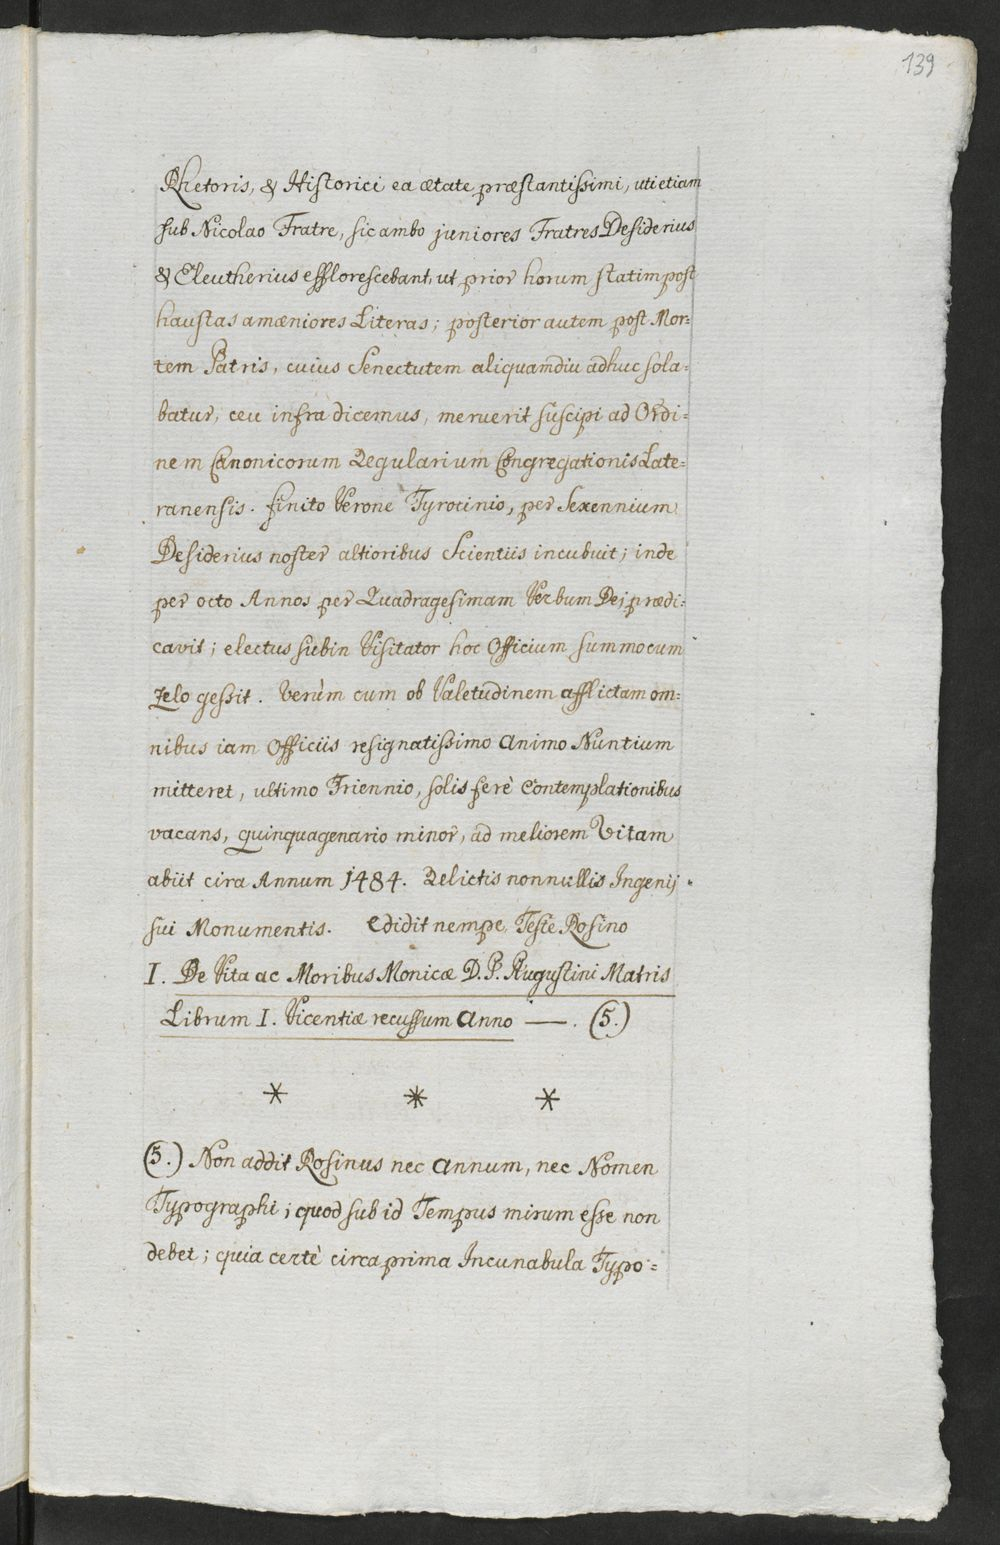 139
Rhetoris, & Historici ea ætate præstantissimi, uti etiam
sub Nicolao Fratre, sic ambo juniores Fratres Desiderius
& Eleutherius efflorescebant, ut prior horum statim post
haustas amæniores Literas; posterior autem post Mor=
tem Patris, cuius Senectutem aliquamdiu adhuc sola=
batur, ceu infra dicemus, meruerit suscipi ad Ordi=
nem Canonicorum Regularium Congregationis Late=
ranensis. finito Verone Tyrocinio, per Sexennium
Desiderius noster altioribus Scientiis incubuit; inde
per octo Annos per Quadragesimam Verbum Dej prædi=
cavit; electus subin Visitator hoc Officium summo cum
zelo gessit. Verùm cum ob Valetudinem afflictam om=
nibus iam Officiis resignatissimo animo Nuntium
mitteret, ultimo Triennio, solis ferè Contemplationibus
vacans, quinquagenario minor, ad meliorem Vitam
abiit cira Annum 1484. Relictis nonnullis Ingenij
sui Monumentis. Edidit nempe, Teste Rosino
I. De Vita ac Moribus Monicæ D. P. Augustini Matris
Librum I. Vicentiæ recussum Anno —. (5.)
* * *
(5.) Non addit Rosinus nec annum, nec Nomen
Typographi; quod sub id Tempus mirum esse non
debet; quia certè circa prima Incunabula Typo=